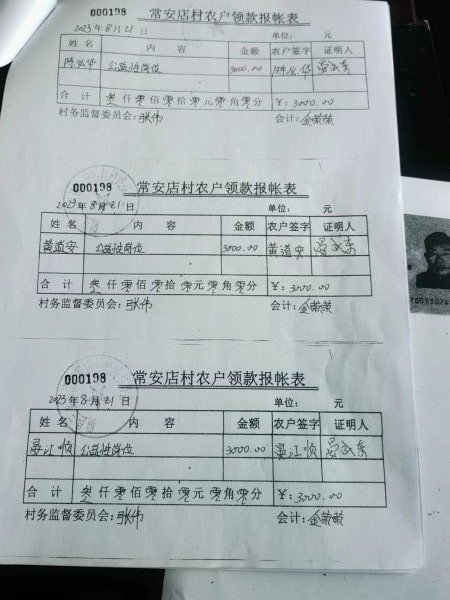 000198 常安店村农户领款报帐表
2023年8月21日
单位: 元
姓名 内容 金额 农户签字 证明人
公益性岗位 3000.00
合计 叁仟零佰零拾零元零角零分 ¥:3000.00
村务监督委员会:张伟 会计:
000198 常安店村农户领款报帐表
2023年8月21日
单位: 元
姓名 内容 金额 农户签字 证明人
黄道安 公益性岗位 3000.00 黄道安
合计 叁仟零佰零拾零元零角零分 ¥:3000.00
村务监督委员会:张伟 会计:
000198 常安店村农户领款报帐表
2023年8月21日
单位: 元
姓名 内容 金额 农户签字 证明人
晏江顺 公益性岗位 3000.00 晏江顺
合计 叁仟零佰零拾零元零角零分 ¥:3000.00
村务监督委员会:张伟 会计: